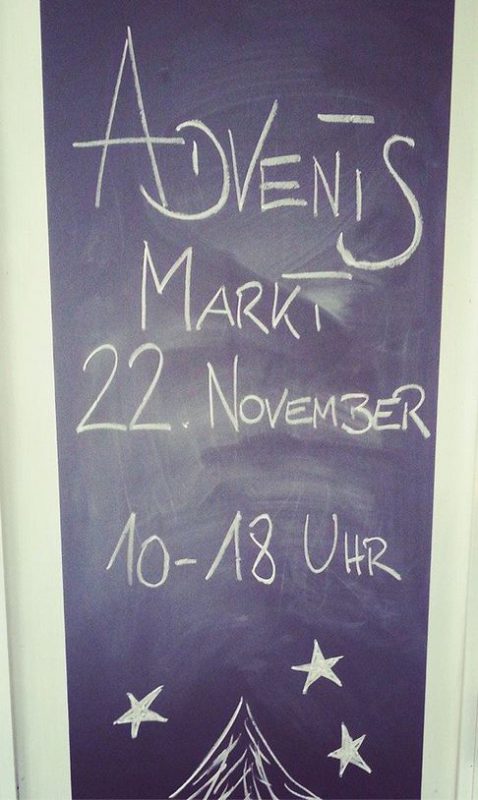 ADVENTS
MARKT
22. NOVEMBER
10-18 UHR